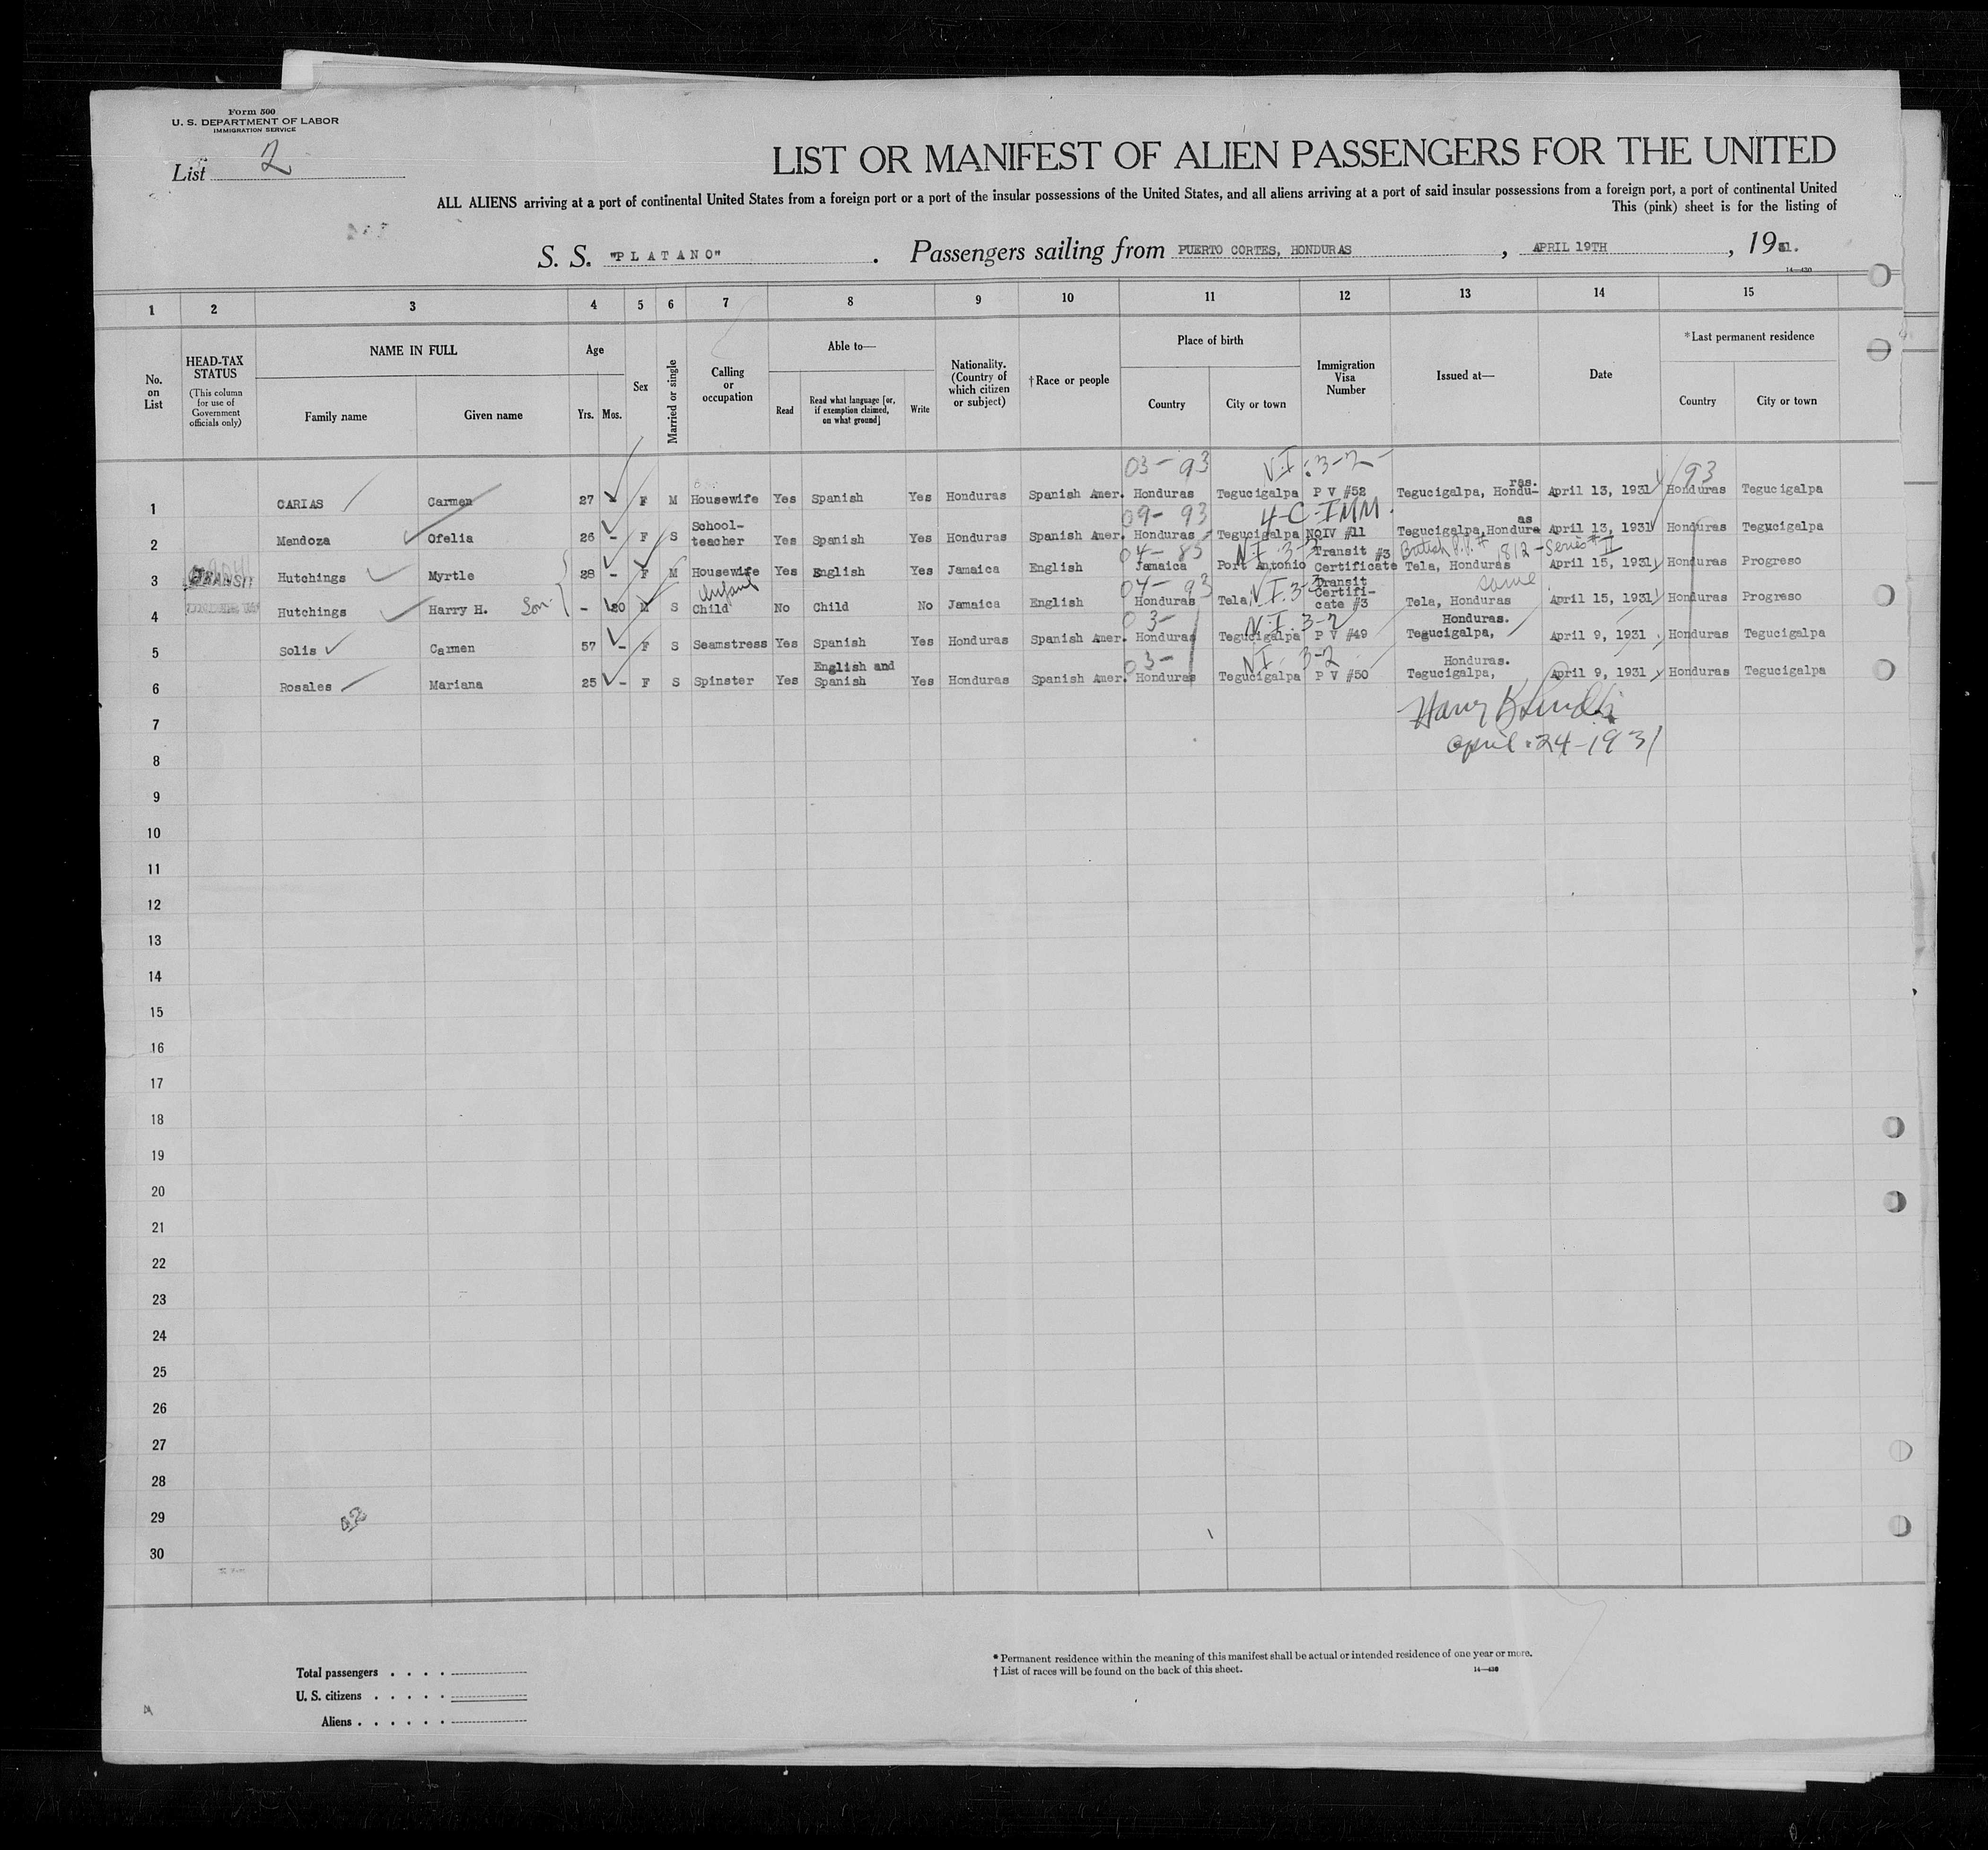 Form 500
U. S. DEPARTMENT OF LABOR
IMMIGRATION SERVICE
List 2
LIST OR MANIFEST OF ALIEN PASSENGERS FOR THE UNITED
ALL ALIENS arriving at a port of continental United States from a foreign port or a port of the insular possessions of the United States, and all aliens arriving at a port of said insular possessions from a foreign port, a port of continental United
This (pink) sheet is for the listing of
S. S. "PLATANO" . Passengers sailing from PUERTO CORTES, HONDURAS , APRIL 19TH , 1931.
14—430
1 2 3 4 5 6 7 8 9 10 11 12 13 14 15
No. on List
HEAD-TAX STATUS
(This column for use of Government officials only)
NAME IN FULL
Family name
Given name
Age
Yrs.
Mos.
Sex
Married or single
Calling or occupation
Able to—
Read
Read what language [or, if exemption claimed, on what ground]
Write
Nationality. (Country of which citizen or subject)
†Race or people
Place of birth
Country
City or town
Immigration Visa Number
Issued at—
Date
*Last permanent residence
Country
City or town
03-93 N.I. 3-2 93
1 CARIAS Carmen 27 F M Housewife Yes Spanish Yes Honduras Spanish Amer. Honduras Tegucigalpa P V #52 Tegucigalpa, Hondu-ras. April 13, 1931 Honduras Tegucigalpa
09-93 4-C-IMM.
2 Mendoza Ofelia 26 - F S School-teacher Yes Spanish Yes Honduras Spanish Amer. Honduras Tegucigalpa NQIV #11 Tegucigalpa, Honduras April 13, 1931 Honduras Tegucigalpa
04-85 N.I. 3- British P.P. # 1812-Series #II
3 TRANSIT Hutchings Myrtle 28 - F M Housewife Yes English Yes Jamaica English Jamaica Port Antonio Transit Certificate #3 Tela, Honduras April 15, 1931 Honduras Progreso
04-93 N.I. 3-3 same
4 Hutchings Harry H. Son 20 M S Infant Child No Child No Jamaica English Honduras Tela, Transit Certifi-cate #3 Tela, Honduras April 15, 1931 Honduras Progreso
03- N.I. 3-2
5 Solis Carmen 57 - F S Seamstress Yes Spanish Yes Honduras Spanish Amer. Honduras Tegucigalpa P V #49 Tegucigalpa, Honduras. April 9, 1931 Honduras Tegucigalpa
03- N.I. 3-2
6 Rosales Mariana 25 - F S Spinster Yes English and Spanish Yes Honduras Spanish Amer. Honduras Tegucigalpa P V #50 Tegucigalpa, Honduras. April 9, 1931 Honduras Tegucigalpa
7 Harry
8 April 24-1931
9
10
11
12
13
14
15
16
17
18
19
20
21
22
23
24
25
26
27
28
29
30
Total passengers . . . .
U. S. citizens . . . . .
Aliens . . . . . .
* Permanent residence within the meaning of this manifest shall be actual or intended residence of one year or more.
† List of races will be found on the back of this sheet.
14—430